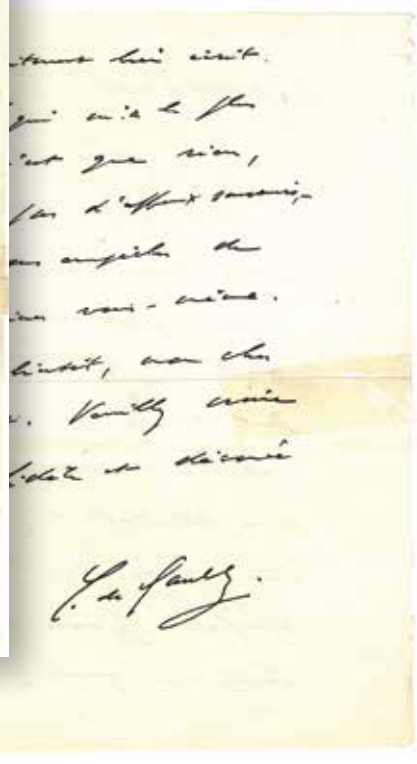 bien écrit.
qui m'a le plus
c'est que rien,
pas d'affreux souvenirs,
empêcher de
vous-même.
bientôt, mon cher
Veuillez croire
fidèle et dévoué
C. de Gaulle.